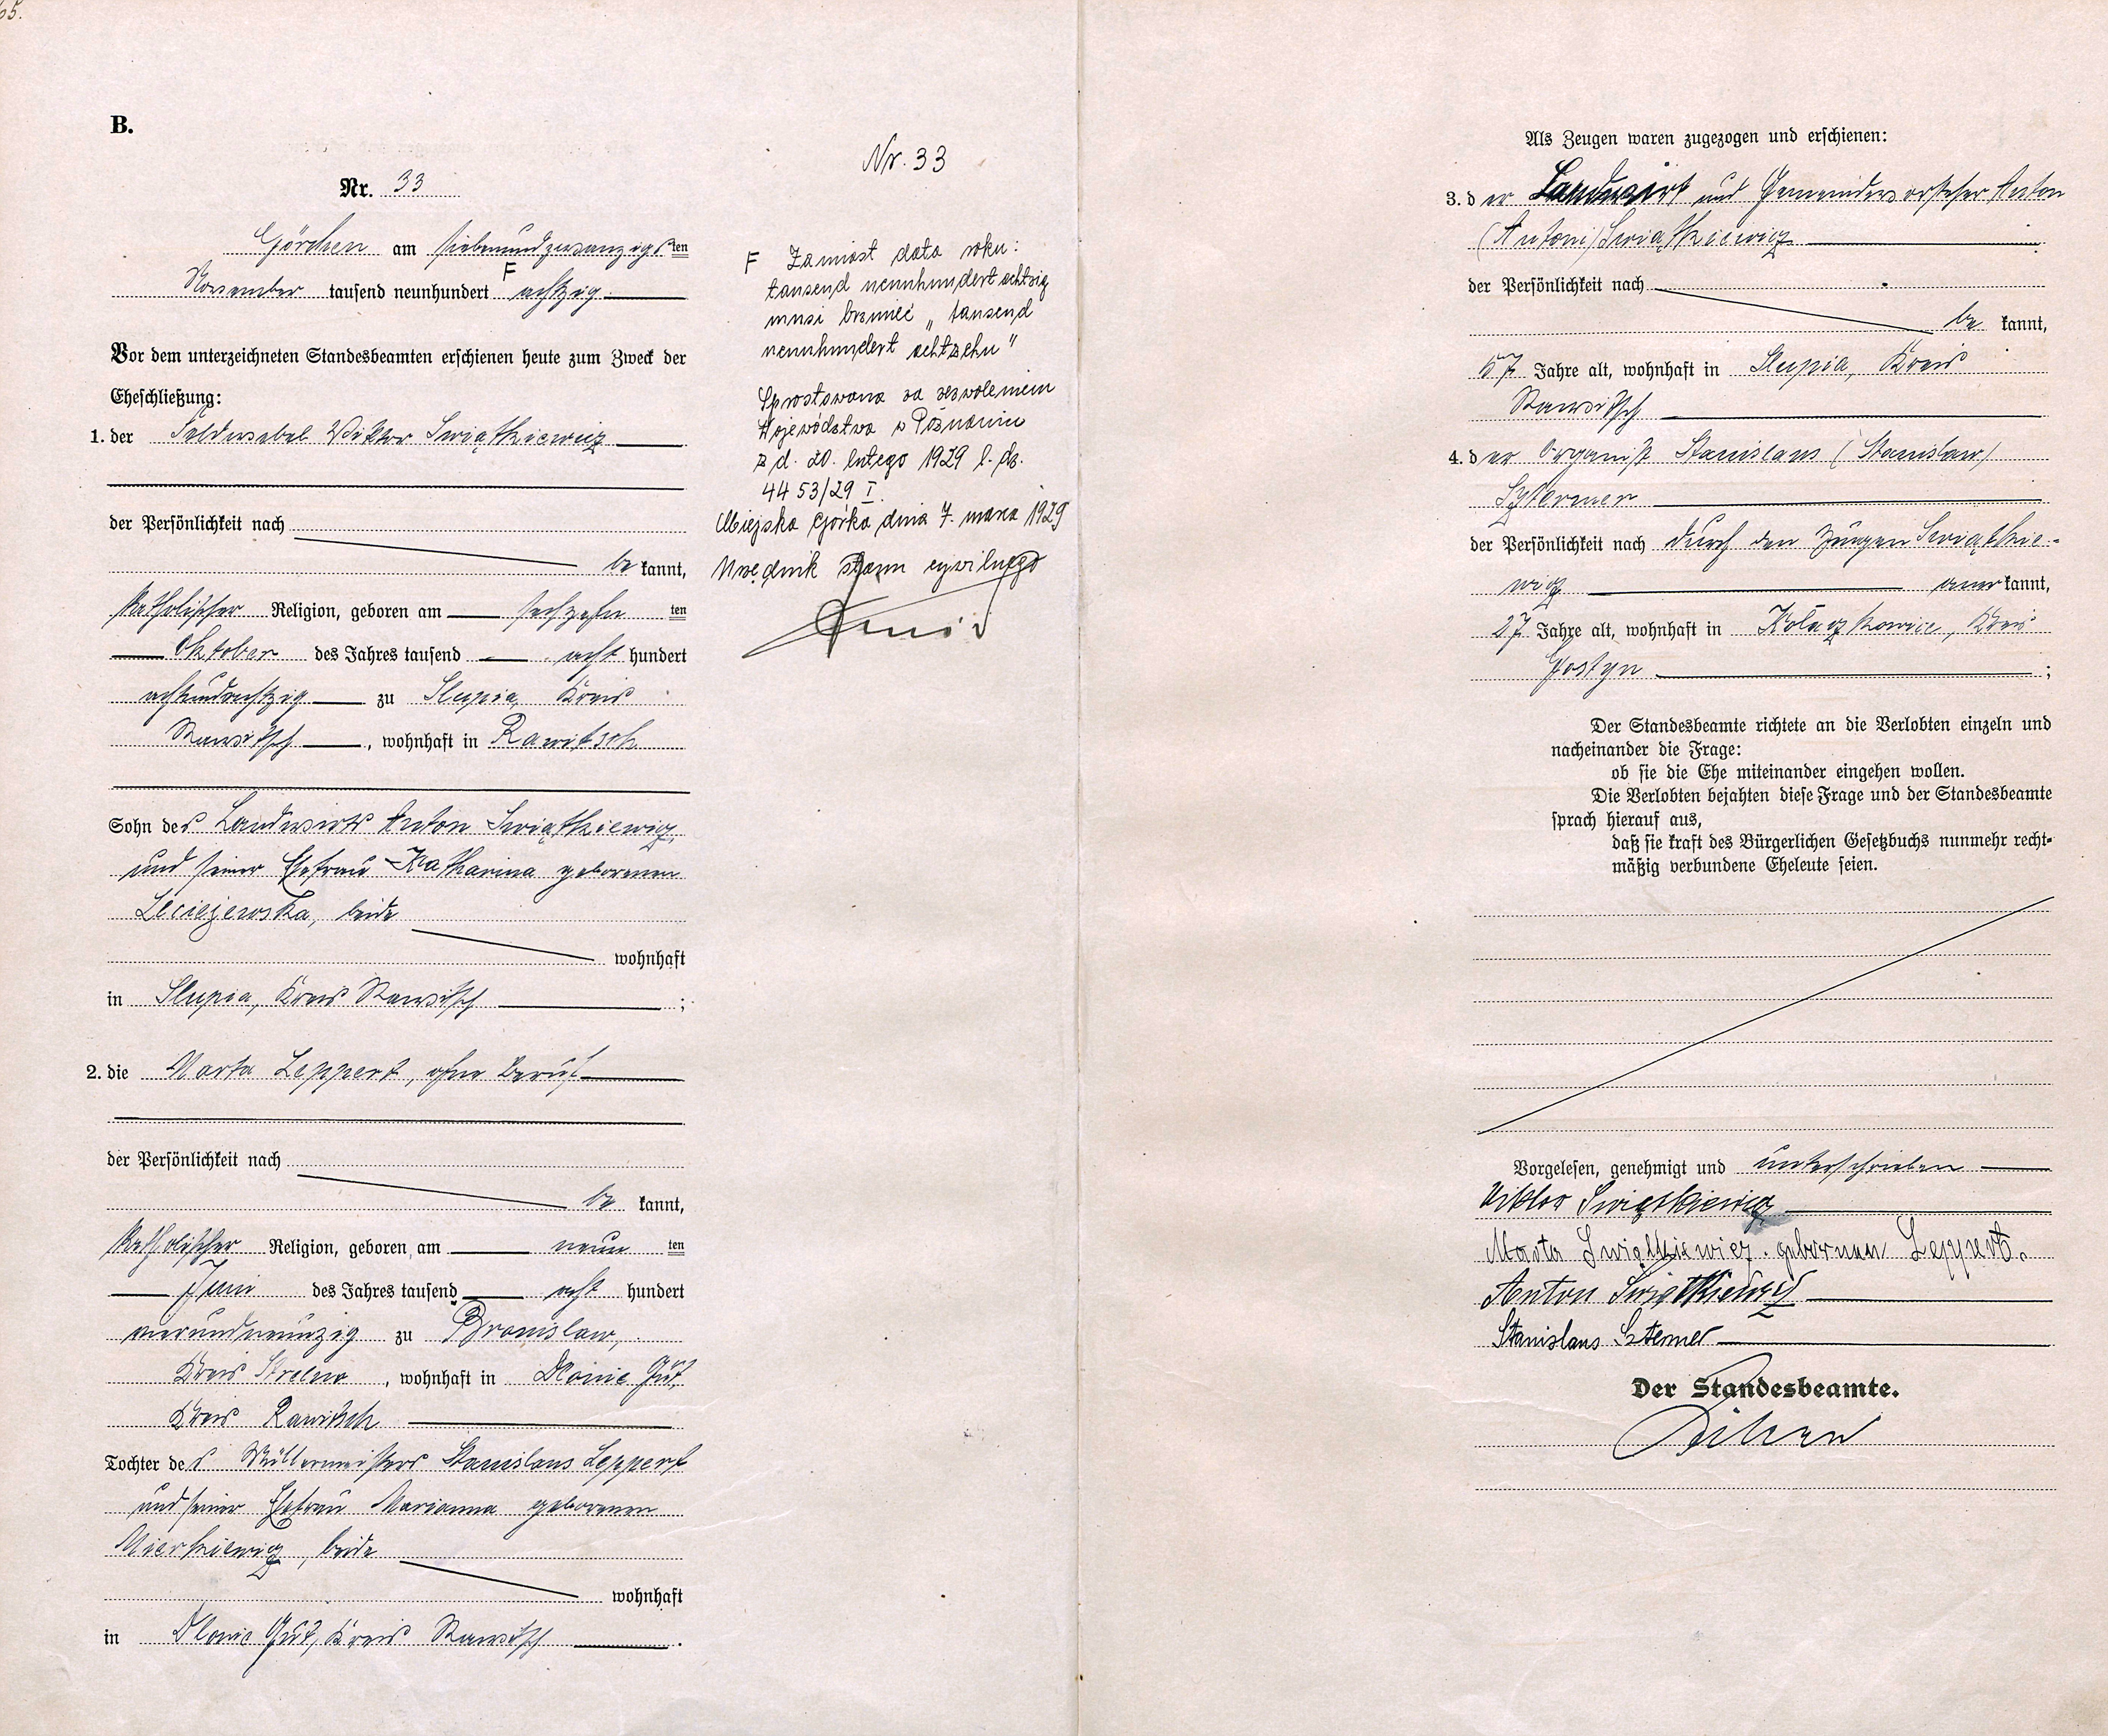 65.
B.
Nr. 33
Görchen am siebenundzwanzigsten
November tausend neunhundert F achtzig
Vor dem unterzeichneten Standesbeamten erschienen heute zum Zweck der
Eheschließung:
1. der Feldwebel Viktor Swiątkiewicz
der Persönlichkeit nach
be kannt,
katholischer Religion, geboren am sechzehn ten
Oktober des Jahres tausend acht hundert
achtundachtzig zu Slupia, Kreis
Rawitsch, wohnhaft in Rawitsch
Sohn des Landwirts Anton Swiątkiewicz
und seiner Ehefrau Katharina geborenen
Leciejewska, beide
wohnhaft
in Slupia, Kreis Rawitsch ;
2. die Marta Leppert, ohne Beruf
der Persönlichkeit nach
be kannt,
katholischer Religion, geboren am neun ten
Juni des Jahres tausend acht hundert
vierundneunzig zu Bronislaw,
Kreis Strelno, wohnhaft in Dlonie Gut,
Kreis Rawitsch
Tochter des Müllermeisters Stanislaus Leppert
und seiner Ehefrau Marianna geborenen
Mierkiewicz, beide
wohnhaft
in Dlonie Gut, Kreis Rawitsch .
Nr. 33
F Zamiast data roku:
tausend neunhundert achtzig
musi brzmieć „tausend
neunhundert achtzehn"
Sprostowano za zezwoleniem
Województwa w Poznaniu
z d. 20. lutego 1929 l. dz.
4453/29 I.
Miejska Górka dnia 7. marca 1929
Urzędnik stanu cywilnego
Als Zeugen waren zugezogen und erschienen:
3. der Landwirt und Gemeindevorsteher Anton
(Antoni) Swiątkiewicz
der Persönlichkeit nach
be kannt,
57 Jahre alt, wohnhaft in Slupia, Kreis
Rawitsch
4. der Organist Stanislaus (Stanislaw)
der Persönlichkeit nach durch den Zeugen Swiątkie-
wicz aner kannt,
27 Jahre alt, wohnhaft in Kolaczkowice, Kreis
Gostyn ;
Der Standesbeamte richtete an die Verlobten einzeln und
nacheinander die Frage:
ob sie die Ehe miteinander eingehen wollen.
Die Verlobten bejahten diese Frage und der Standesbeamte
sprach hierauf aus,
daß sie kraft des Bürgerlichen Gesetzbuchs nunmehr recht-
mäßig verbundene Eheleute seien.
Vorgelesen, genehmigt und unterschrieben
Viktor Swiątkiewicz
Marta Swiątkiewicz geborenen Leppert.
Anton Swiątkiewicz
Stanislaus
Der Standesbeamte.